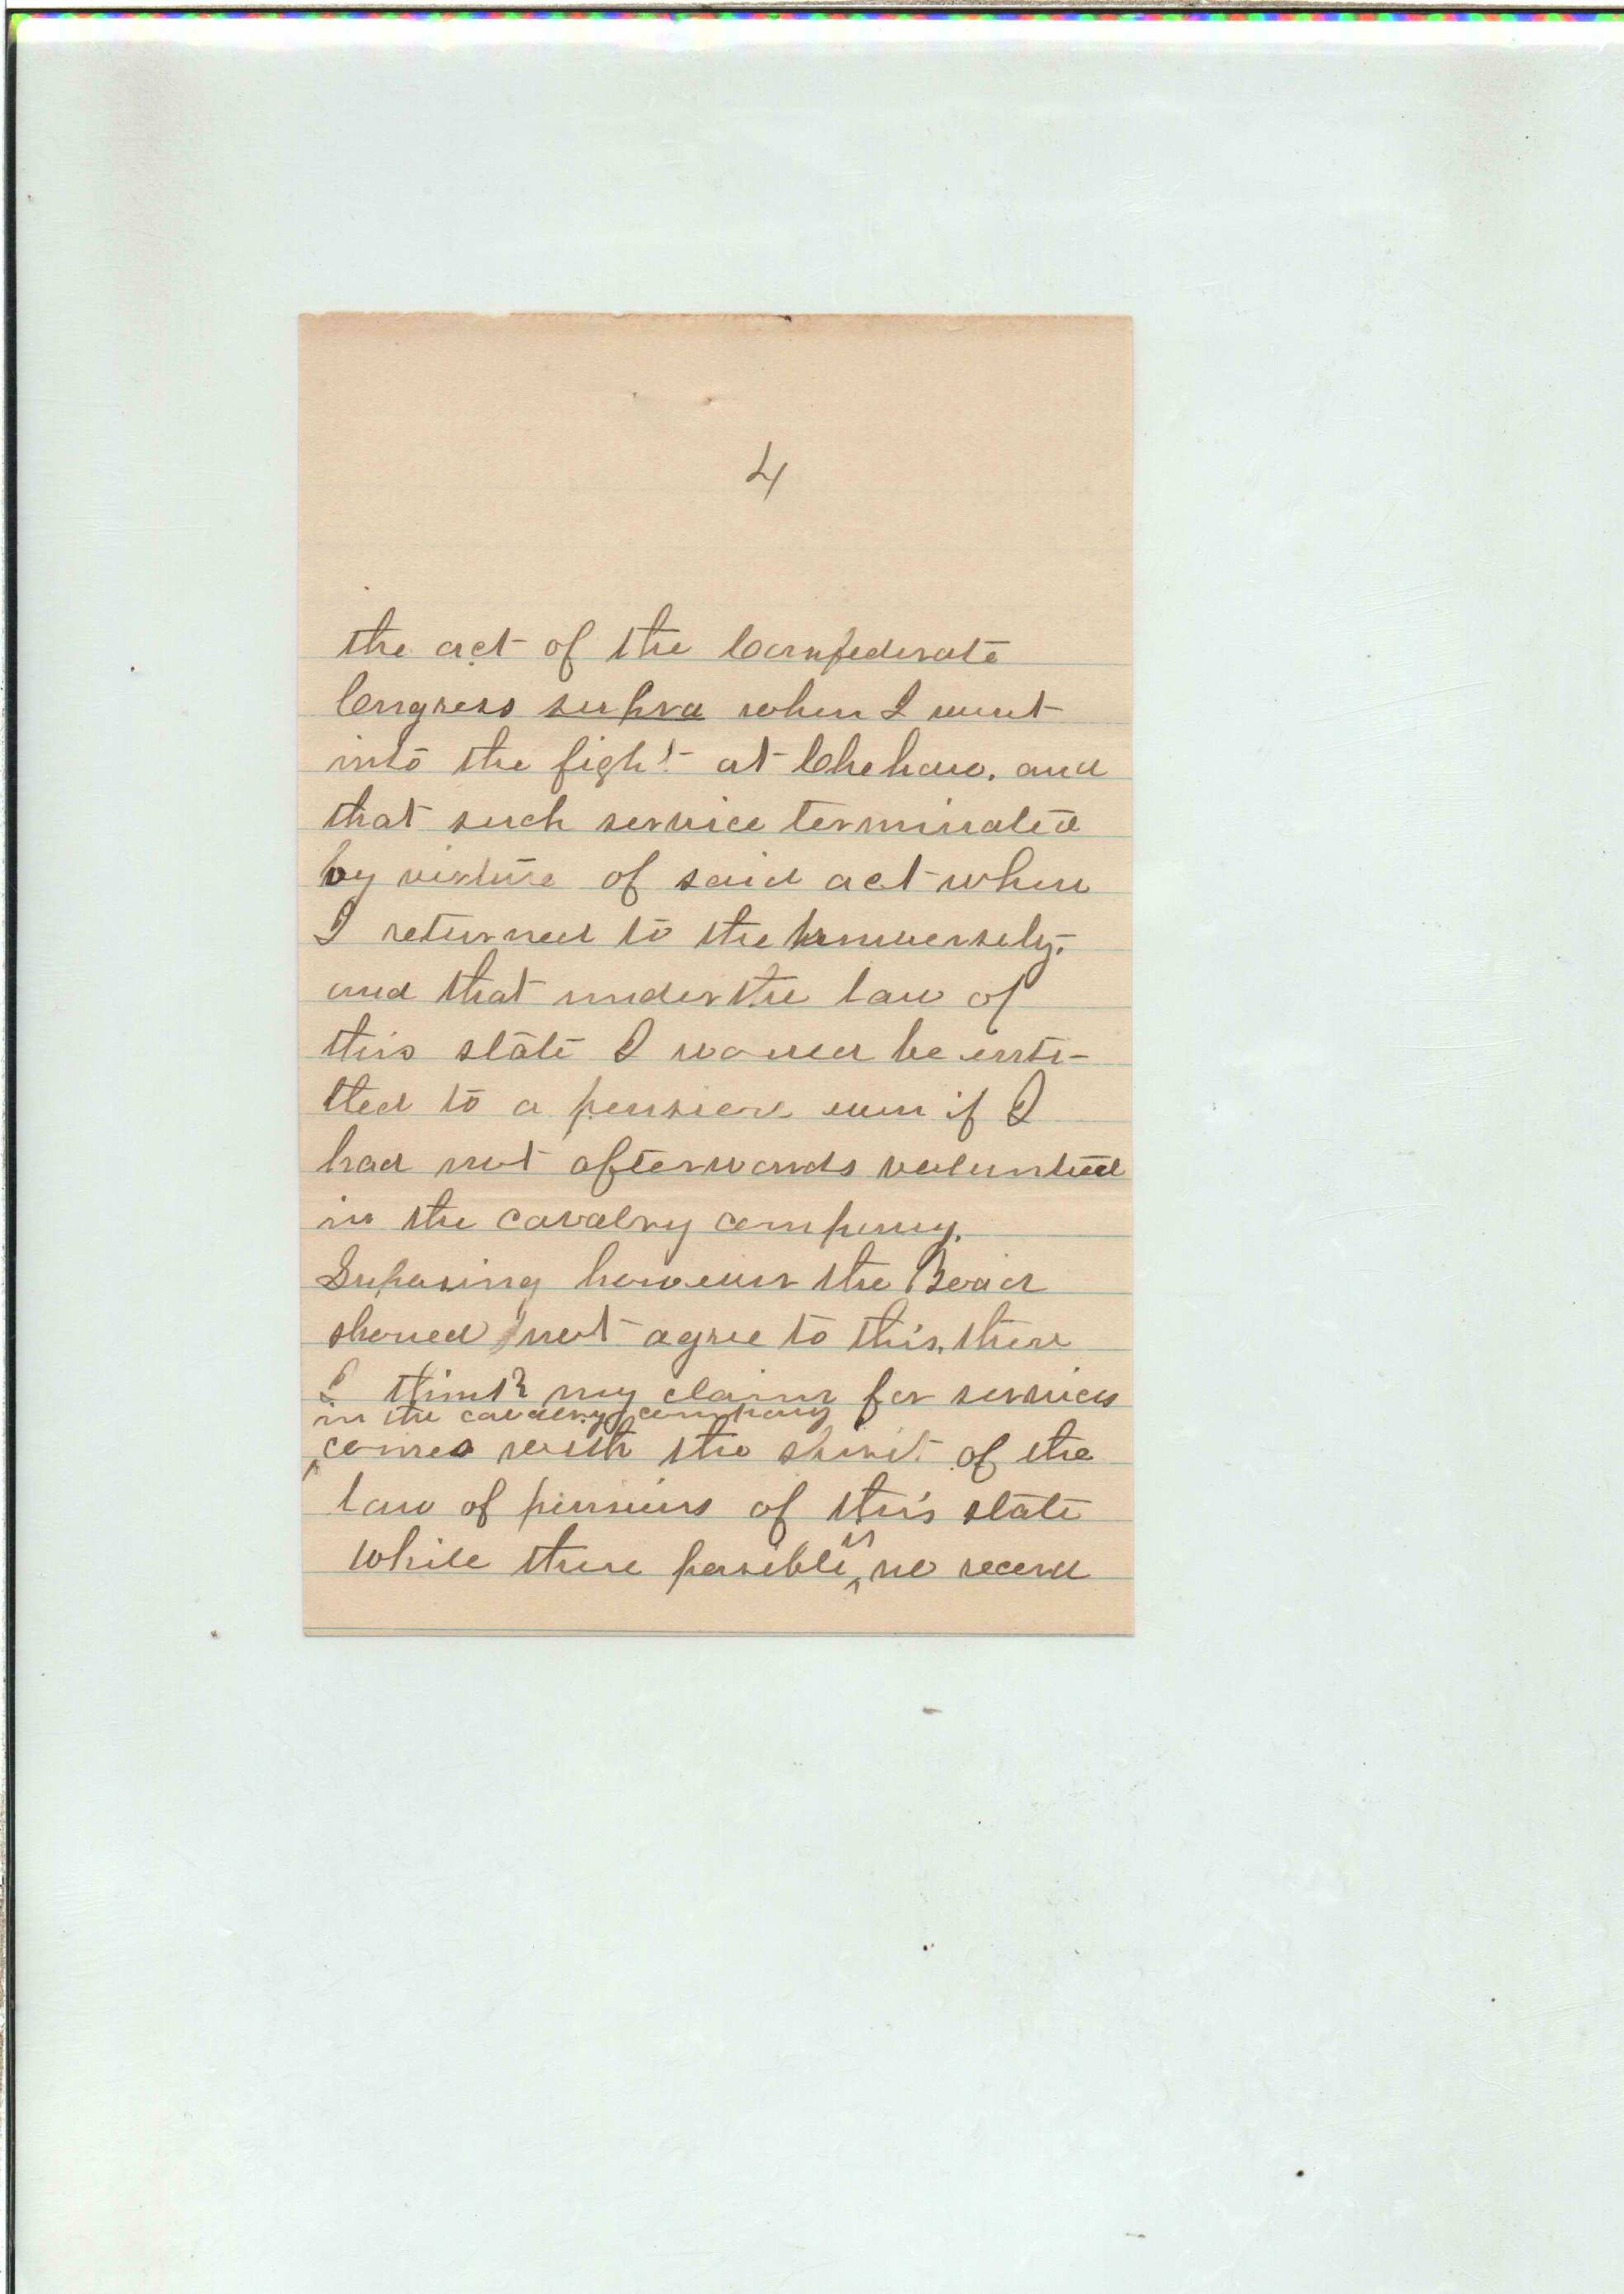 4
the act of the Confederate
Congress supra when I went
into the fight at Chehaw. and
that such service terminated
by virture of said act when
I returned to the University.
and that under the law of
this state I would be enti-
tled to a pension even if I
had not afterwards volunteed
in the cavalry company.
Suposing however the Board
should not agree to this, then
I think my claim for services
in the cavalry company
comes with the spirit of the
law of pensions of this state
while there possible is no record